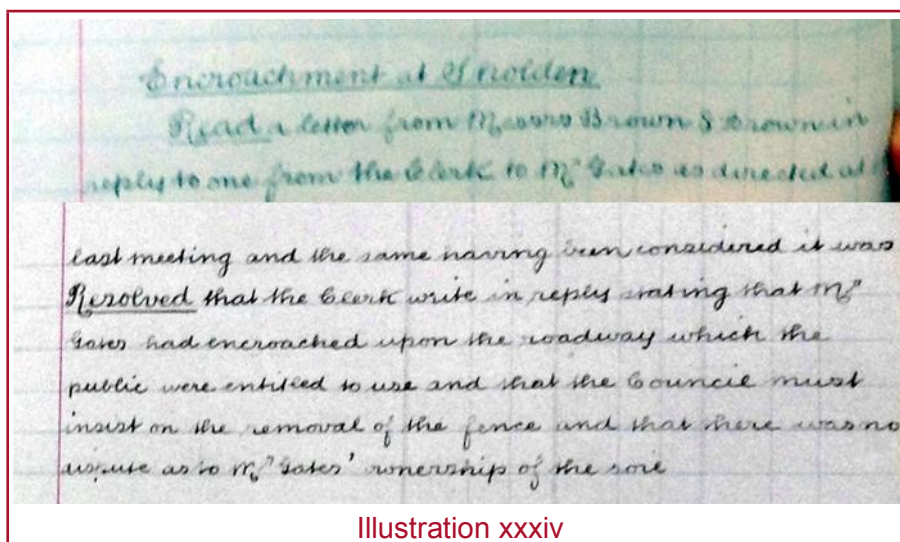 Encroachment at Snolden
Read a letter from Messrs Brown & Brown in
reply to one from the Clerk to Mr Gates as directed at
last meeting and the same having been considered it was
Resolved that the Clerk write in reply stating that Mr
Gates had encroached upon the roadway which the
public were entitled to use and that the Council must
insist on the removal of the fence and that there was no
dispute as to Mr Gates' ownership of the soil
Illustration xxxiv